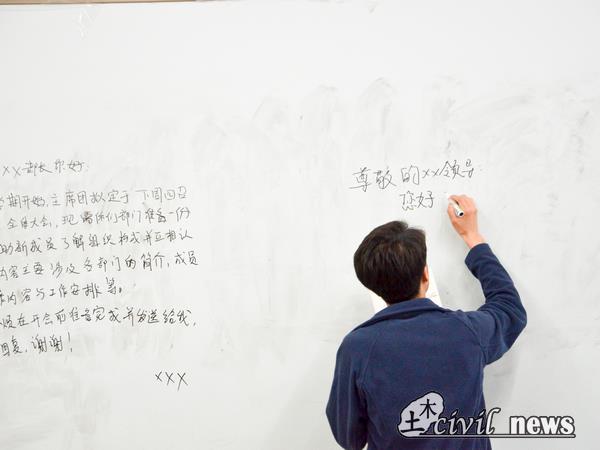 xx部长你好:
期开始,主席团拟定于下周四召
全体大会,现需你们部门准备一份
新成员了解组织构成并互相认
内容主要涉及各部门的简介,成员
内容与工作安排等。
在开会前准备完成并发送给我,
回复,谢谢!
xxx
尊敬的xx领导:
您好
土木 civil news